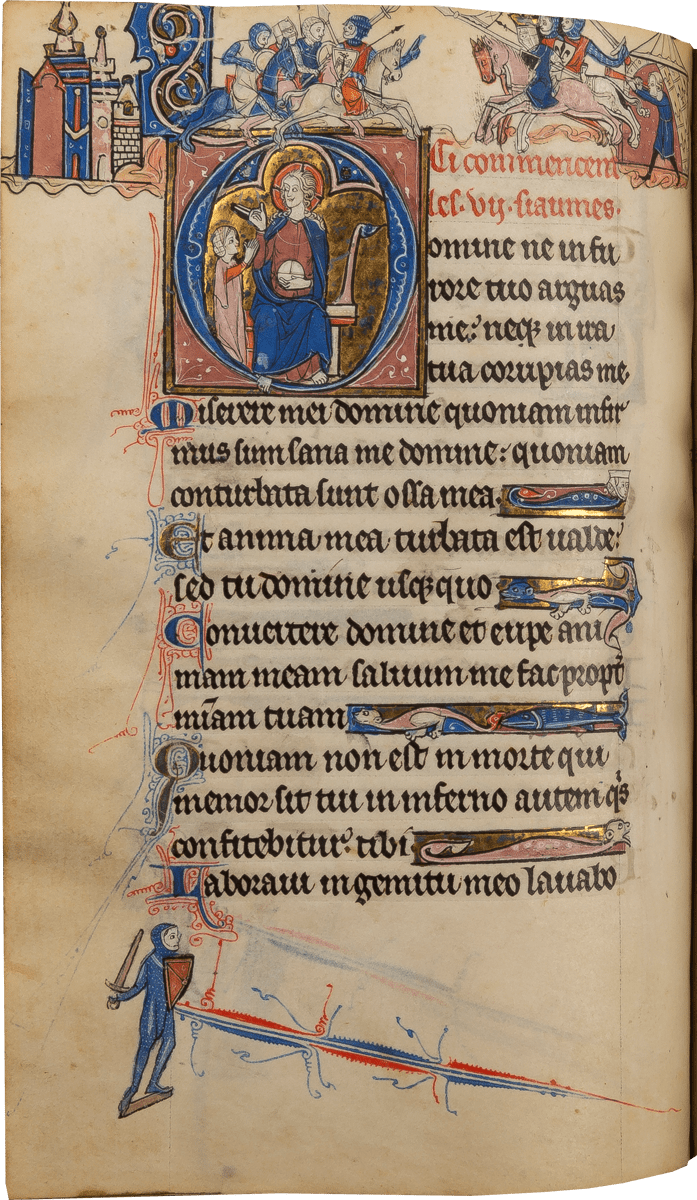 Ci commencent
les .vij. siaumes.
Domine ne in fu
rore tuo arguas
me: neq; in ira
tua corripias me
Miserere mei domine quoniam infir
mus sum sana me domine: quoniam
conturbata sunt ossa mea.
Et anima mea turbata est ualde:
sed tu domine usq; quo
Conuertere domine et eripe ani
mam meam saluum me fac propt̃
mīam tuam
Quoniam non est in morte qui
memor sit tui in inferno autem q̕s
confitebitur tibi
Laboraui in gemitu meo lauabo